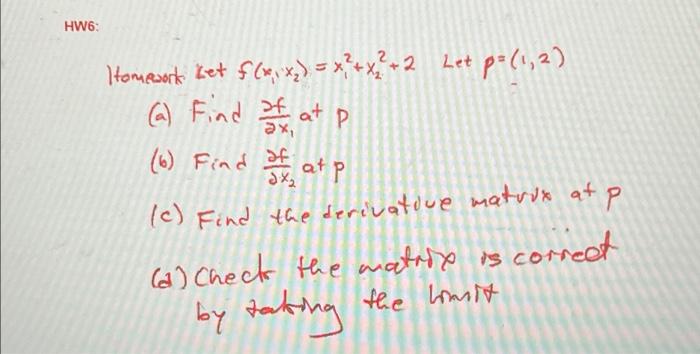 HW6:
Homework Let f(x₁, x₂) = x₁² + x₂² + 2 Let p = (1, 2)
(a) Find ∂f/∂x₁ at p
(b) Find ∂f/∂x₂ at p
(c) Find the derivative matrix at p
(d) Check the matrix is correct
by taking the limit